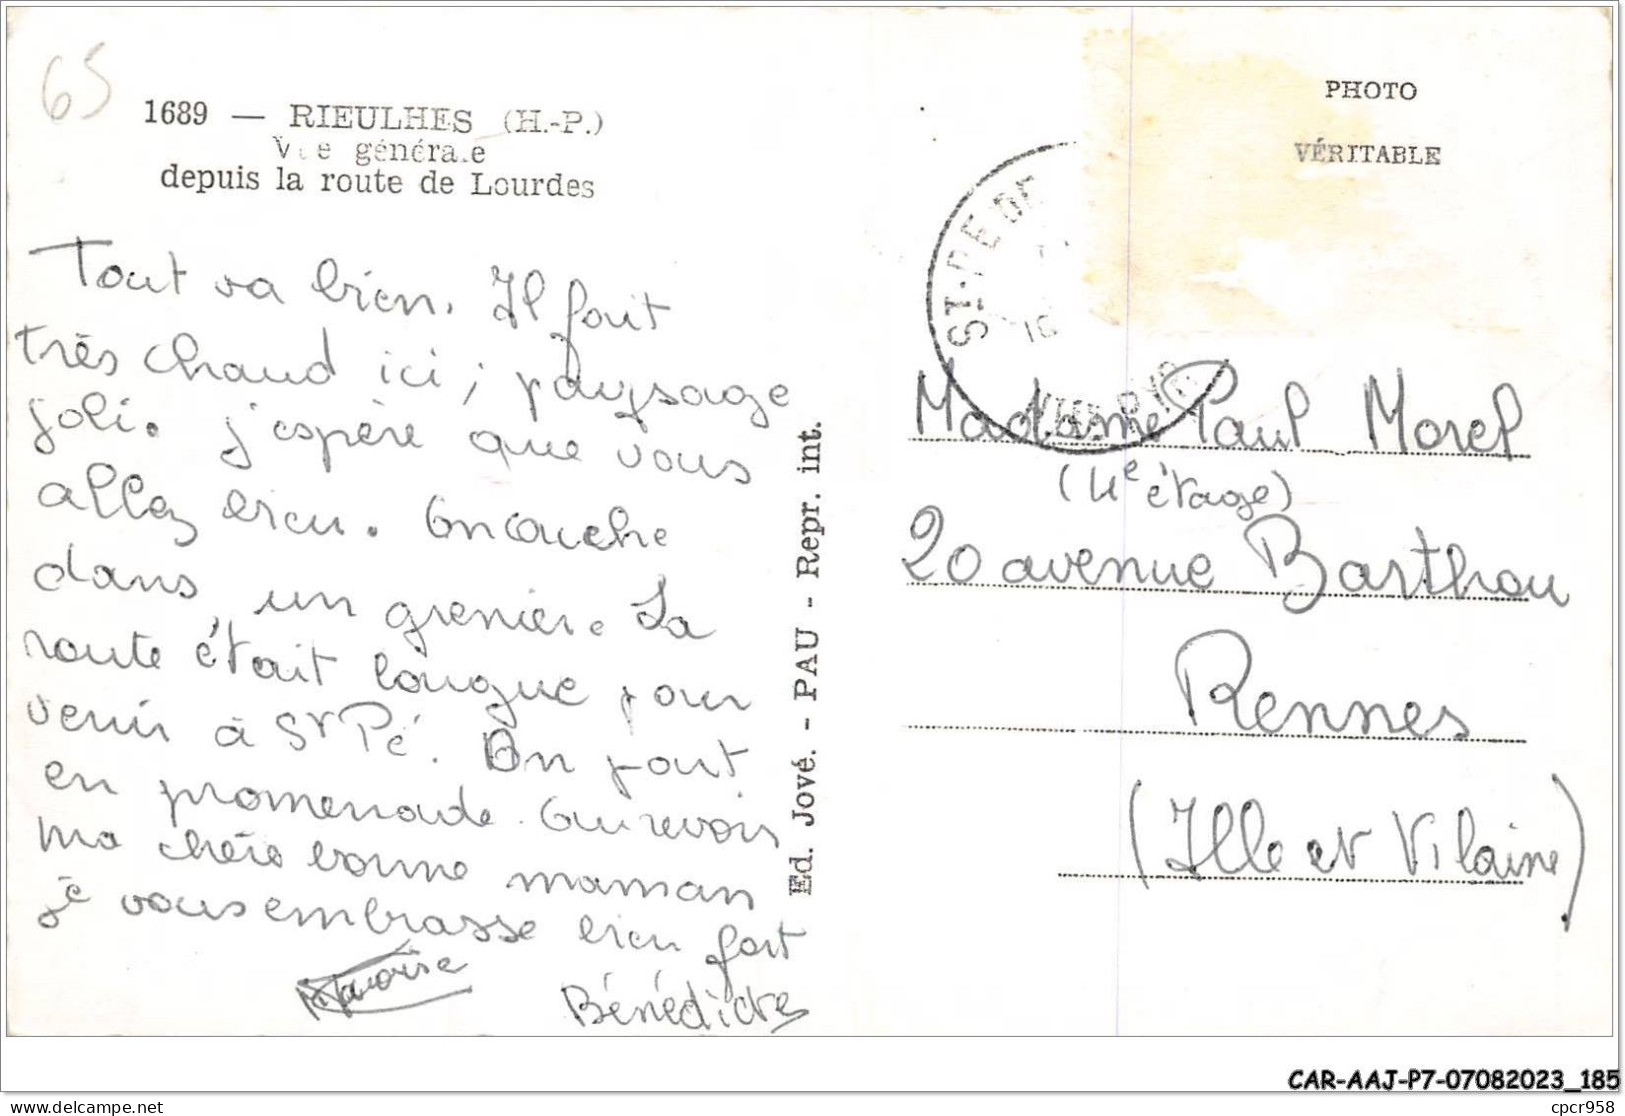 65
1689 — RIEULHES (H.-P.)
Vue générale
depuis la route de Lourdes
Tout va bien. Il fait
très chaud ici ; paysage
joli. J'espère que vous
allez bien. On couche
dans un grenier. La
route était longue pour
venir à St Pé. On part
en promenade. Au revoir
ma chère bonne maman
je vous embrasse bien fort
Bénédicte
Ed. Jové. - PAU - Repr. int.
PHOTO
VÉRITABLE
ST-PE DE
10
Madame Paul Morel
(4e étage)
20 avenue Barthou
Rennes
(Ille et Vilaine)
CAR-AAJ-P7-07082023_185
delcampe.net
cpcr958